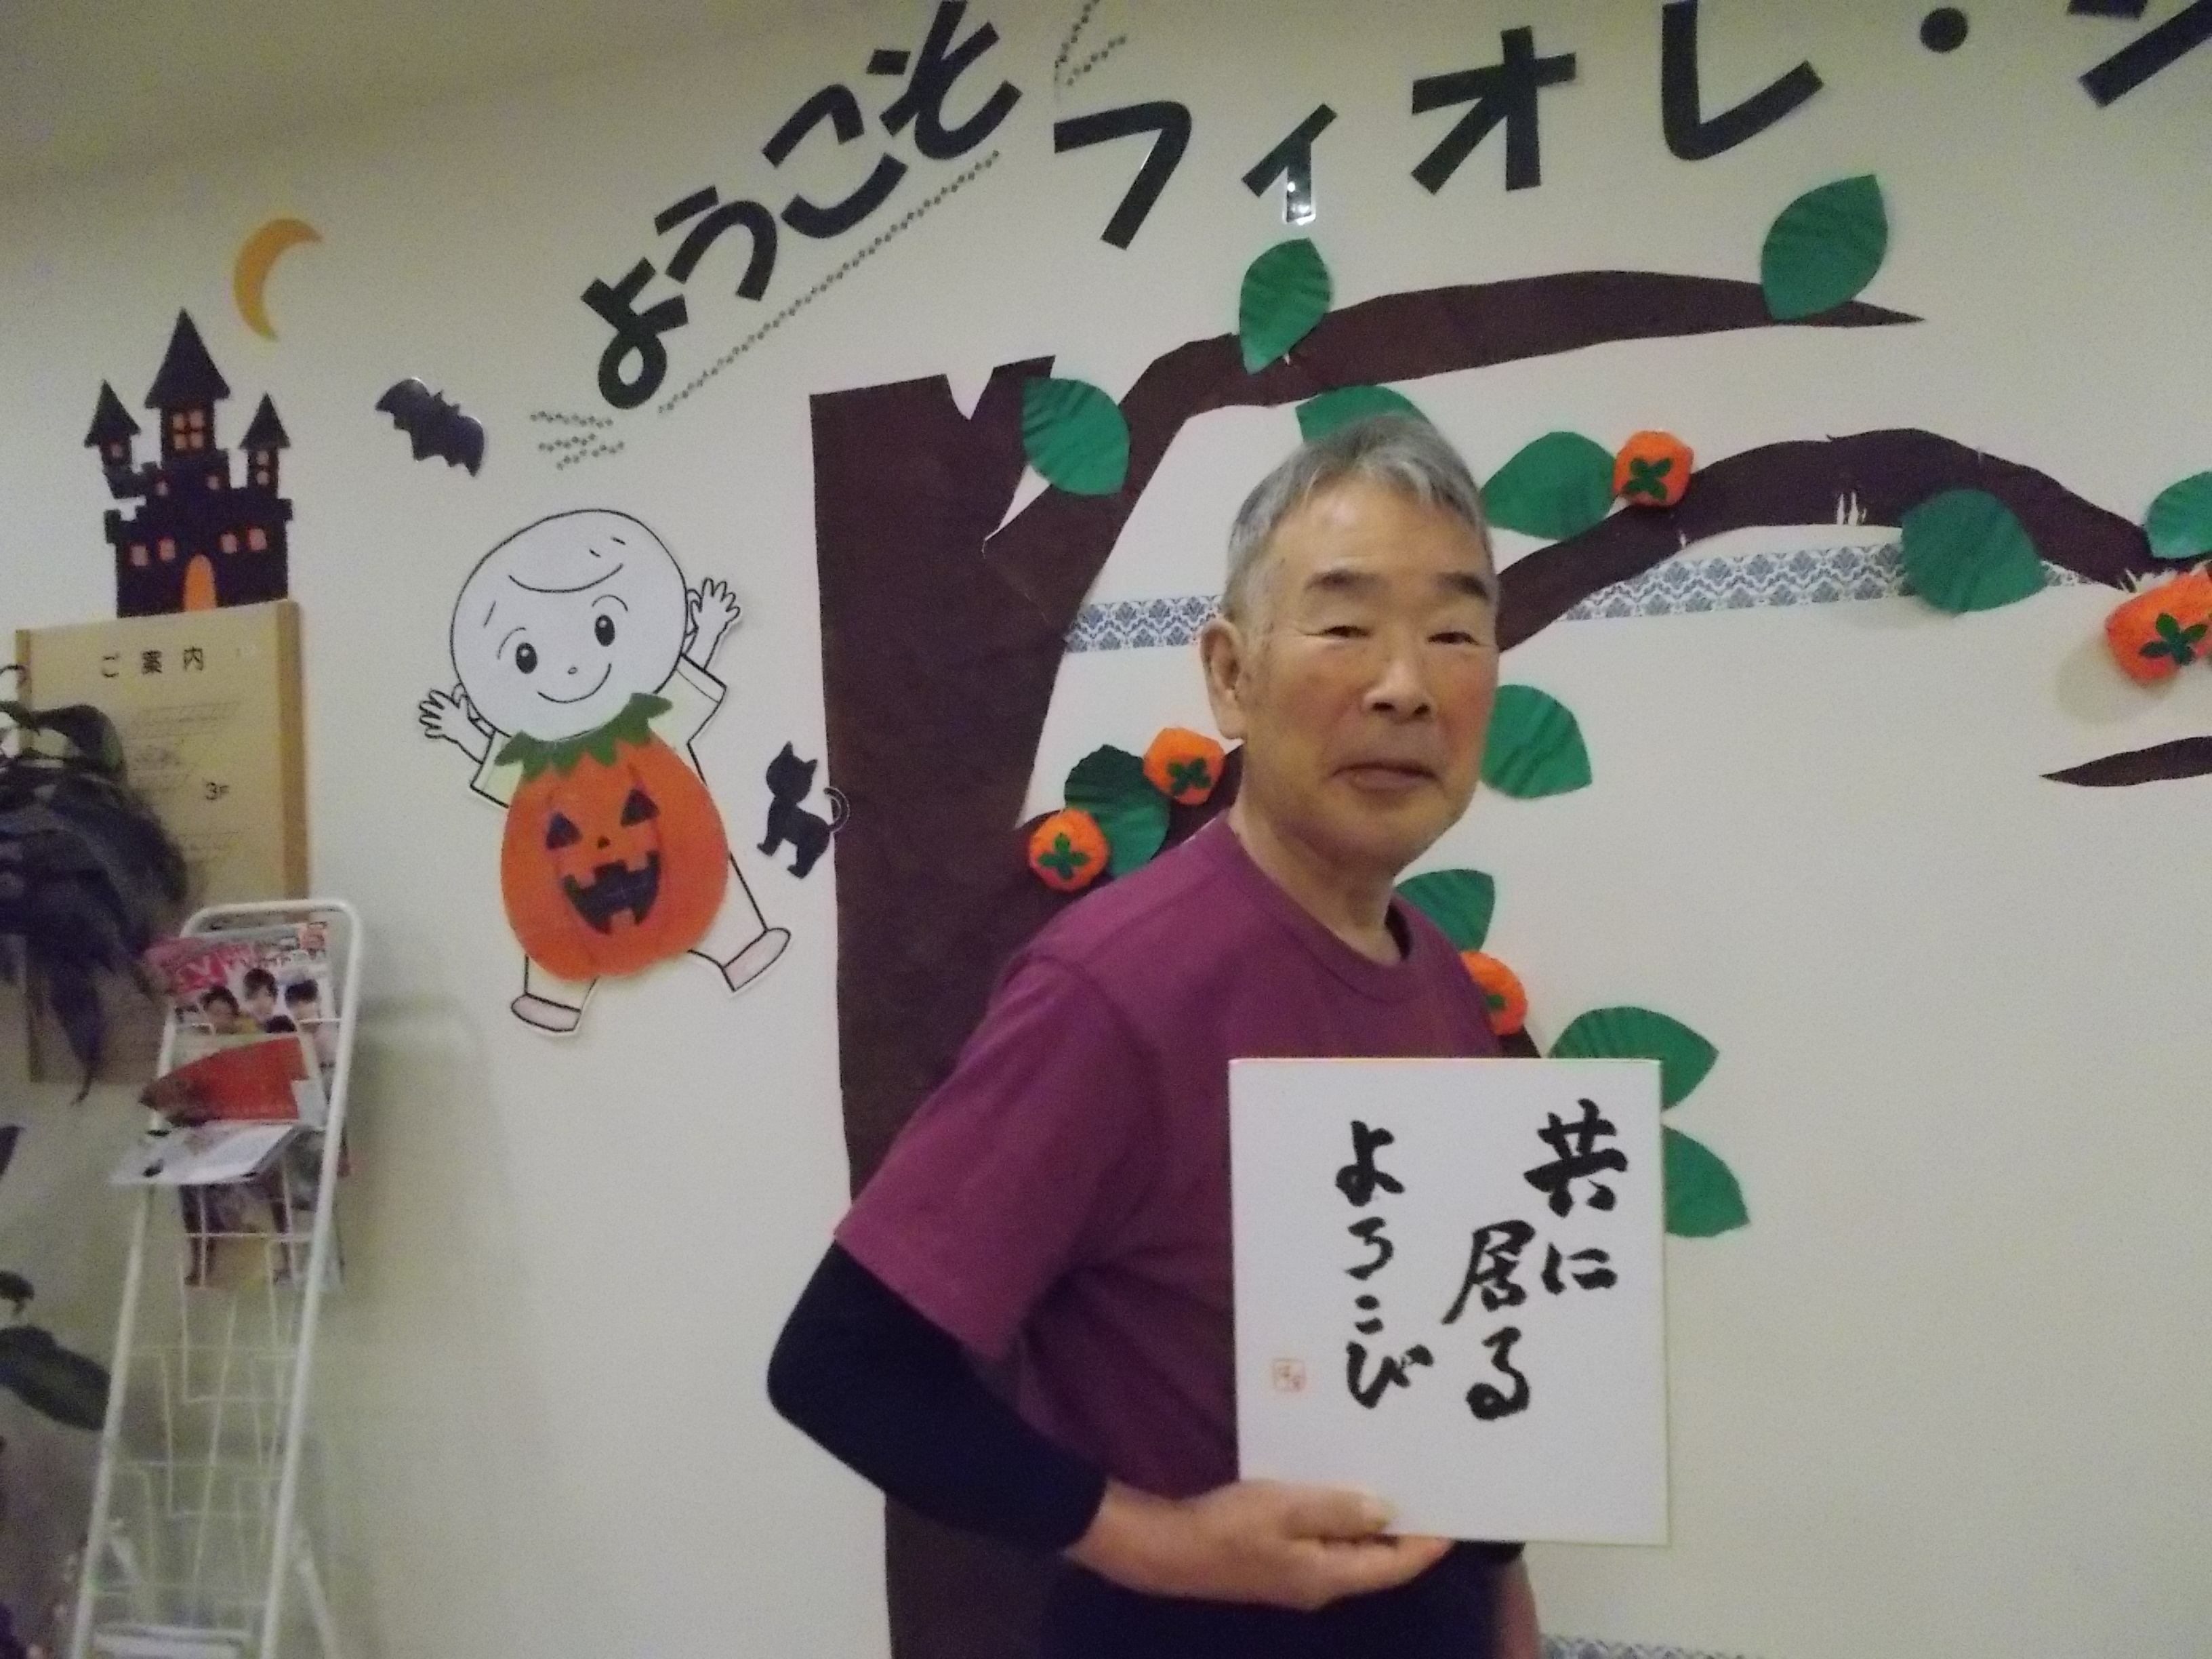 ようこそ
フィオレ・シ
ご案内
3F
共に
居る
よろこび